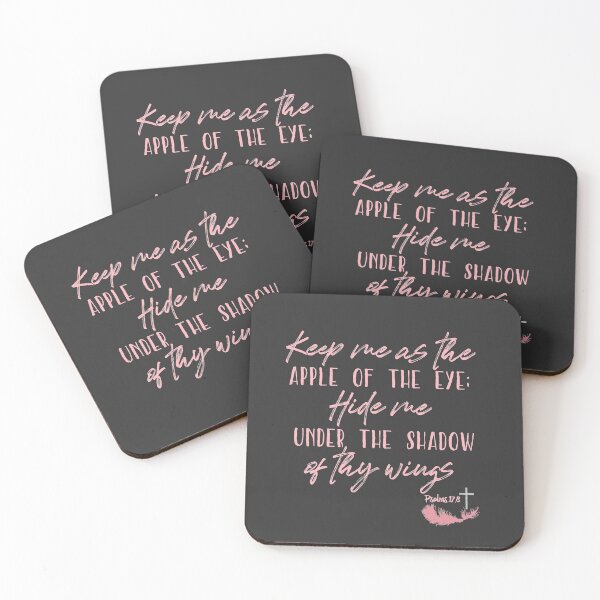 Keep me as the
APPLE OF THE EYE;
Hide me
SHADOW
Keep me as the
APPLE OF THE EYE;
Hide me
UNDER THE SHADOW
of thy wings
Keep me as the
APPLE OF THE EYE;
Hide me
UNDER THE SHADOW
of thy wings
Keep me as the
APPLE OF THE EYE;
Hide me
UNDER THE SHADOW
of thy wings
Psalms 17:8